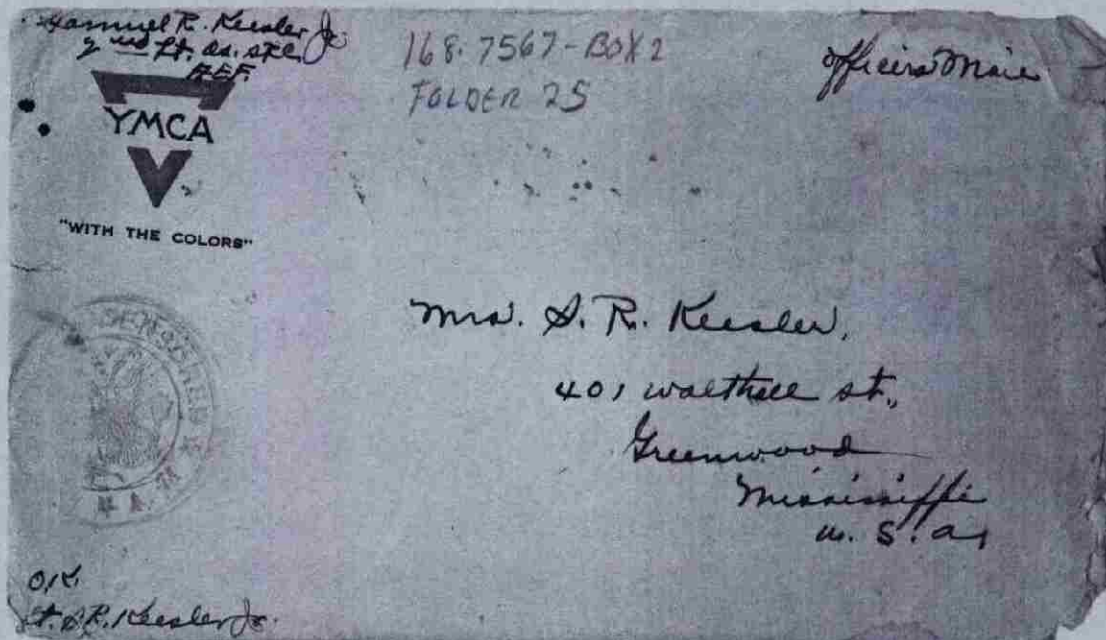 Samuel R. Keesler Jr
2nd Lt. as. src
AEF
168.7567-BOX 2
FOLDER 25
Officers Mail
YMCA
"WITH THE COLORS"
Mrs. S. R. Keesler,
401 Walthall st.,
Greenwood
Mississippi
U. S. A,
OK
Lt. S.R. Keesler Jr.